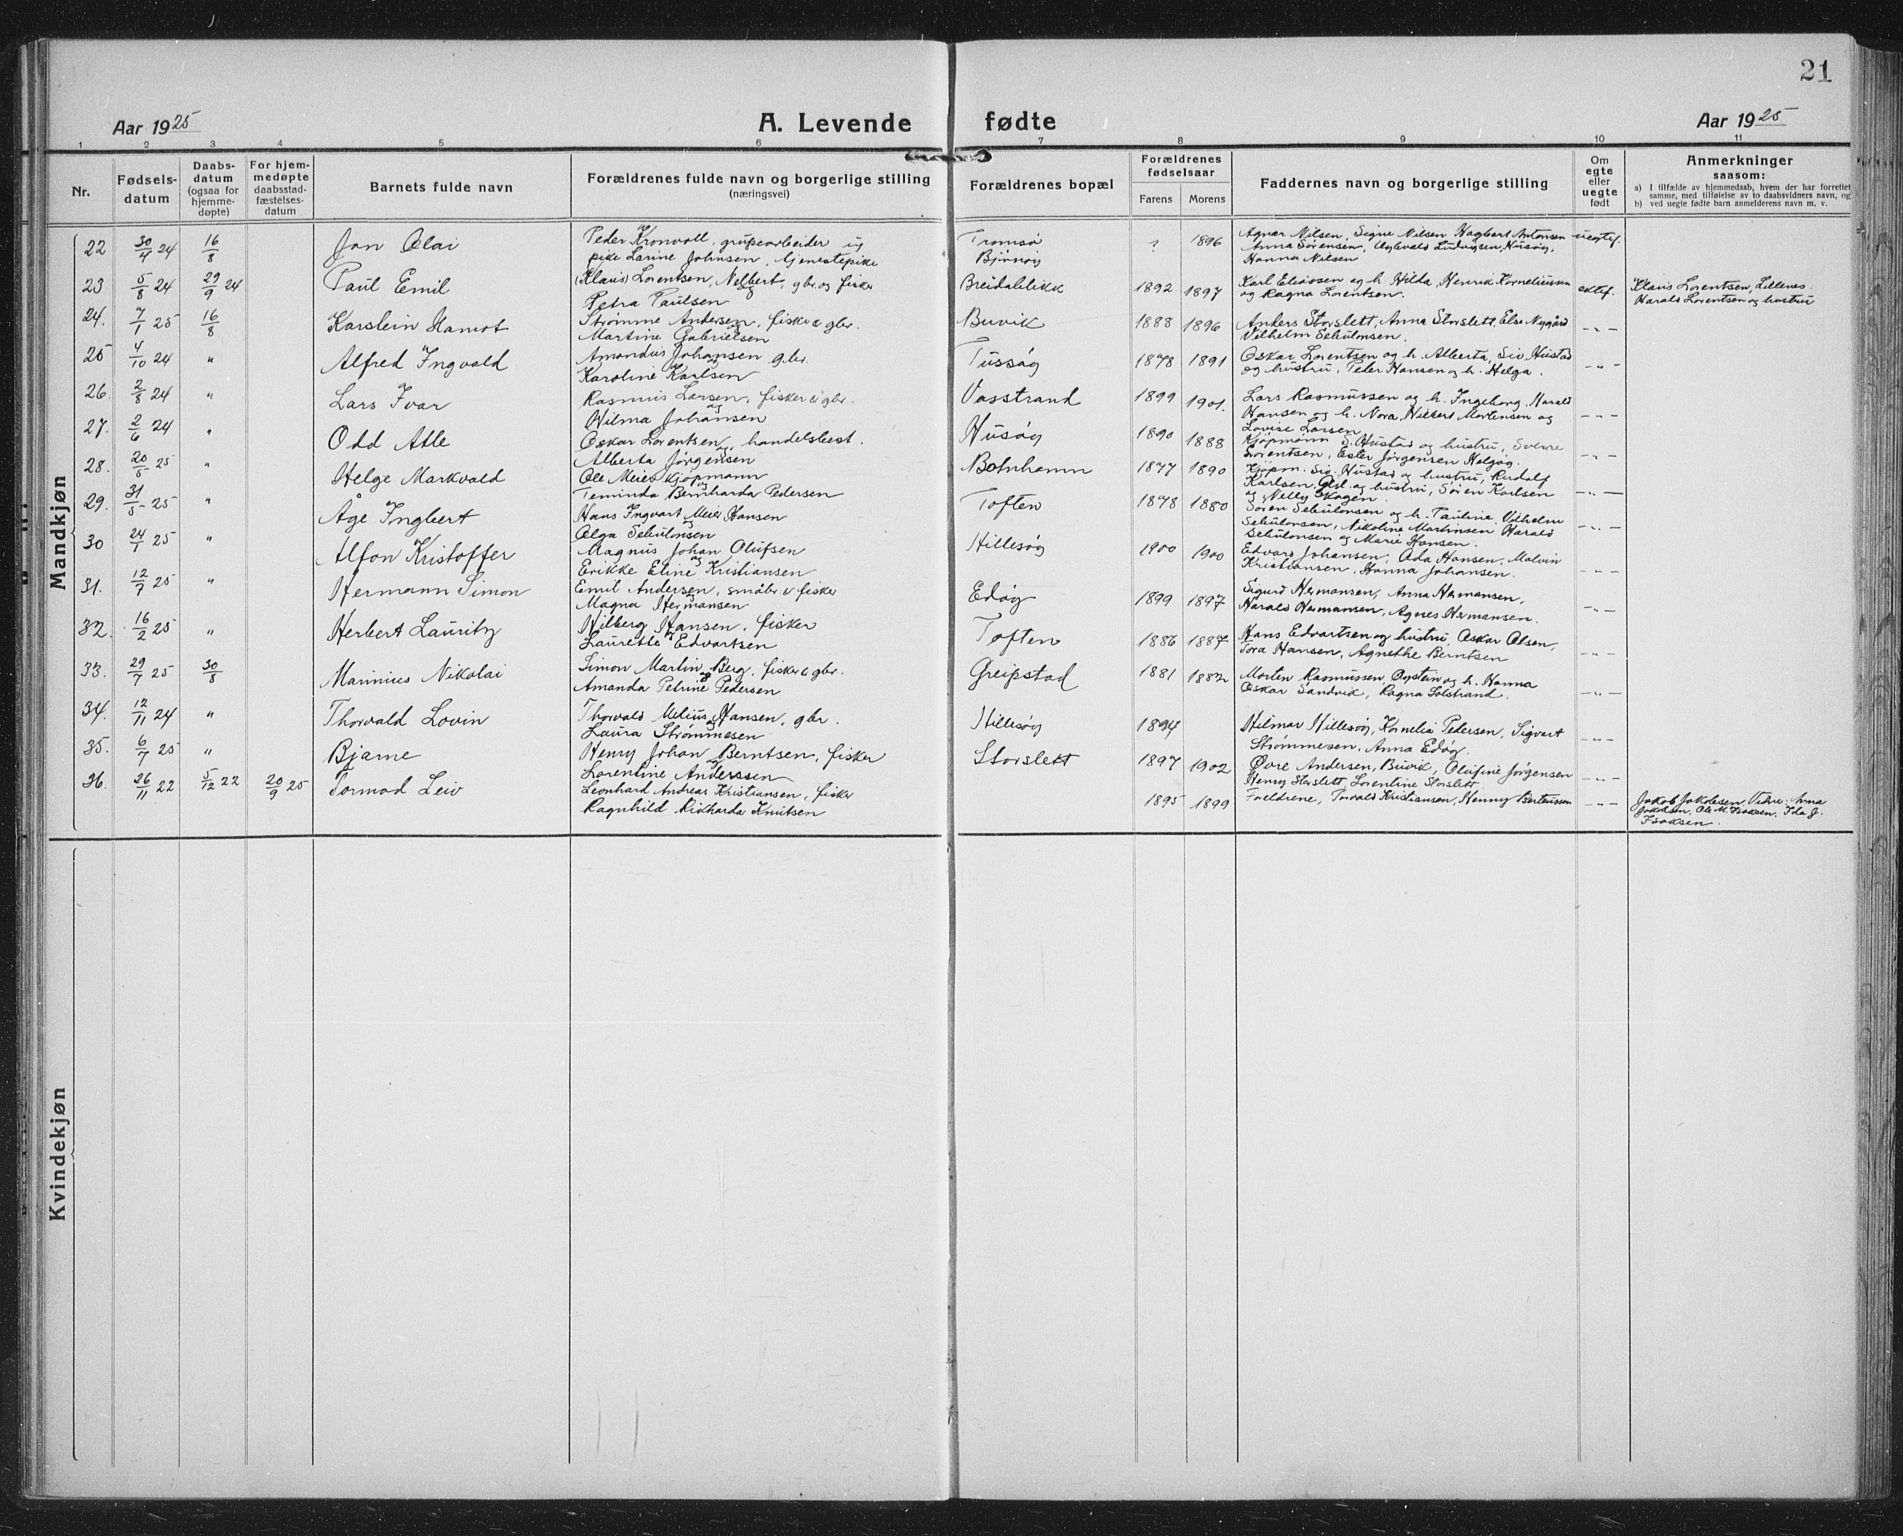 21
Aar 1925
A. Levende
fødte
Aar 1925
1 2 3 4 5 6 7 8 9 10 11
Nr.
Fødsels-
datum
Daabs-
datum
(ogsaa for
hjemme-
døpte)
For hjem-
medøpte
daabsstad-
fæstelses-
datum
Barnets fulde navn
Forældrenes fulde navn og borgerlige stilling
(næringsvei)
Forældrenes bopæl
Forældrenes
fødselsaar
Farens Morens
Faddernes navn og borgerlige stilling
Om
egte
eller
uegte
født
Anmerkninger
saasom:
a) I tilfælde av hjemmedaab, hvem der har forrettet
samme, med tilføielse av to daabsvidners navn, og
b) ved uegte fødte barn anmelderens navn m. v.
Mandkjøn
22 30/4 24 16/8 Jan Olai
Peder Kronvoll, grupearbeider og
pike Larine Johnsen, tjenestepike
Tromsø
Bjørnøy
? 1896
Agnar Nilsen, Signe Nilsen, Hagbart Antonsen
Anna Sørensen, Ludvigsen, Husøy,
Hanna Nilsen
uegtef.
23 5/8 24 29/9 24 Paul Emil
(Klaus) Lorentsen, Nelbert, gbr. og fisker
Petra Paulsen
Breidablikk 1892 1897
Karl Eliassen og h. Hilda, Henrik Korneliussen
og Ragna Lorentsen.
ektef.
Klaus Lorentsen, Lillenes.
Harald Lorentsen og hustru
24. 7/1 25 16/8 Karstein Hamot
Strømme Andersen, fisker & gbr.
Martine Gabrielsen
Buvik 1888 1896
Anders Storslett, Anna Storslett, Else Nygård
Vilhelm Seluloensen.
- " -
25 4/10 24 " Alfred Ingvald
Amandus Johansen gbr.
Karoline Karlsen
Tussøy 1878 1891
Oskar Lorentsen og h. Alberta, Siv Hustad
og hustru, Peter Hansen og h. Helga.
- " -
26. 2/8 24 " Lars Ivar
Rasmus Larsen, fisker & gbr.
Wilma Johansen
Vasstrand 1899 1901.
Lars Rasmussen og h. Ingeborg, Harald
Hansen og h. Nora, Hilbert Mortensen og
Lovise Larsen
- " -
27. 2/6 24 " Odd Atle
Oskar Lorentsen, handelsbest.
Alberta Jørgensen
Husøy 1890 1888
Kjøpmann S. Hustad og hustru, Sverre
Lorentsen, Ester Jørgensen Helgøy.
- " -
28. 20/5 25 " Helge Markvald
Ole Meier kjøpmann
Teminda Bernharda Pedersen
Botnhamn 1877 1890
Kjøpm. Sig. Hustad og hustru, Rudolf
Karlsen, og hustru, Søren Karlsen
og Nelly Skogen.
- " -
29. 31/5 25 " Åge Ingbert
Hans Ingvart Meier Hansen
Olga Selulonsen
Toften 1878 1880
Søren Selulonsen og h. Pauline, Vilhelm
Selulonsen, Nikoline Martinsen, Harald
Selulonsen og Marie Hansen.
- " -
30 24/1 25 " Alfon Kristoffer
Magnus Johan Olufsen
Erikke Eline Kristiansen
Hillesøy 1900 1900
Edvard Johansen, Ada Hansen, Malvin
Kristiansen, Hanna Johansen.
- " -
31. 12/7 25 " Hermann Simon
Emil Andersen, småbr & fisker
Magna Hermansen
Edøy 1899 1897
Sigurd Hermansen, Anna Hermansen,
Harald Hermansen, Agnes Hermansen.
- " -
32. 16/2 25 " Herbert Lauritz
Hilberg Hansen, fisker
Laurette Edvartsen
Toften 1886 1887
Hans Edvartsen og hustru, Oskar Olsen,
Tora Hansen, Agnethe Berntsen
- " -
33. 29/7 25 30/8 Marinius Nikolai
Simon Martin Berg, fisker & gbr.
Amanda Petrine Pedersen
Greipstad 1881 1882
Morten Rasmussen, Øystein og h. Hanna
Oskar Sandvik, Ragna Solstrand.
- " -
34. 12/11 24 " Thorvald Lovin
Thorvald Melius Hansen, gbr.
Laura Strømmesen
Hillesøy 1894
Hilmar Hillesøy, Kornelia Pedersen, Sigvart
Strømmesen, Anna Edøy.
- " -
35. 6/7 25 " Bjarne
Henry Johan Berntsen, fisker
Lorentine Anderssen
Storslett 1897 1902
Øvre Andersen, Buvik, Olufine Jørgensen
Henry Storslett, Lorentine Storslett
- " -
36. 26/11 22 5/12 22 20/9 25 Tormod Leiv
Leonhard Andreas Kristiansen, fisker
Ragnhild Rikharda Knutsen
1895 1899
Foreldrene, Torvald Kristiansen, Henny Berteussen
- " -
Jakob Jakobsen, Vidre: Arna
Jakobsen, Ole M. Isaksen, Ida J.
Isaksen.
Kvindekjøn